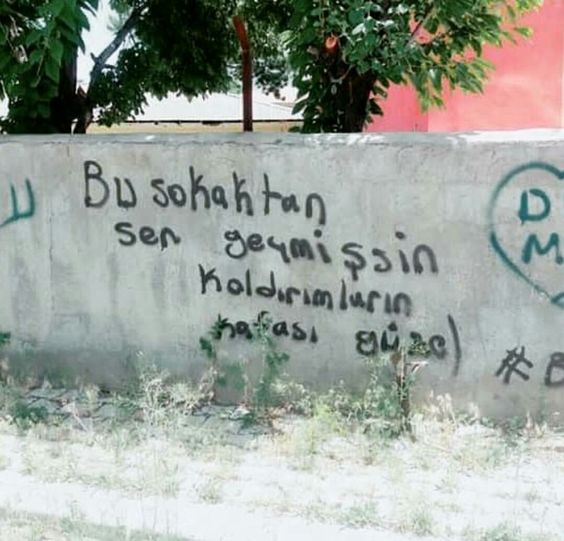 Bu sokaktan
sen geçmişsin
Koldırımların
kafası güzel
D
M
#B